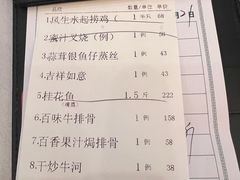 品名 数量/单位 单价
1.风生水起捞鸡( 1 半斤 68
2.蜜汁叉烧（例） 1 例 58
3.蒜茸银鱼仔蒸丝 1 例 43
4.吉祥如意 1 例 43
5.桂花鱼 1.5斤 222
(清蒸)
6.百味牛排骨 1 例 58
7.百香果汁焗排骨 1 例 58
8.干炒牛河 1 例 38